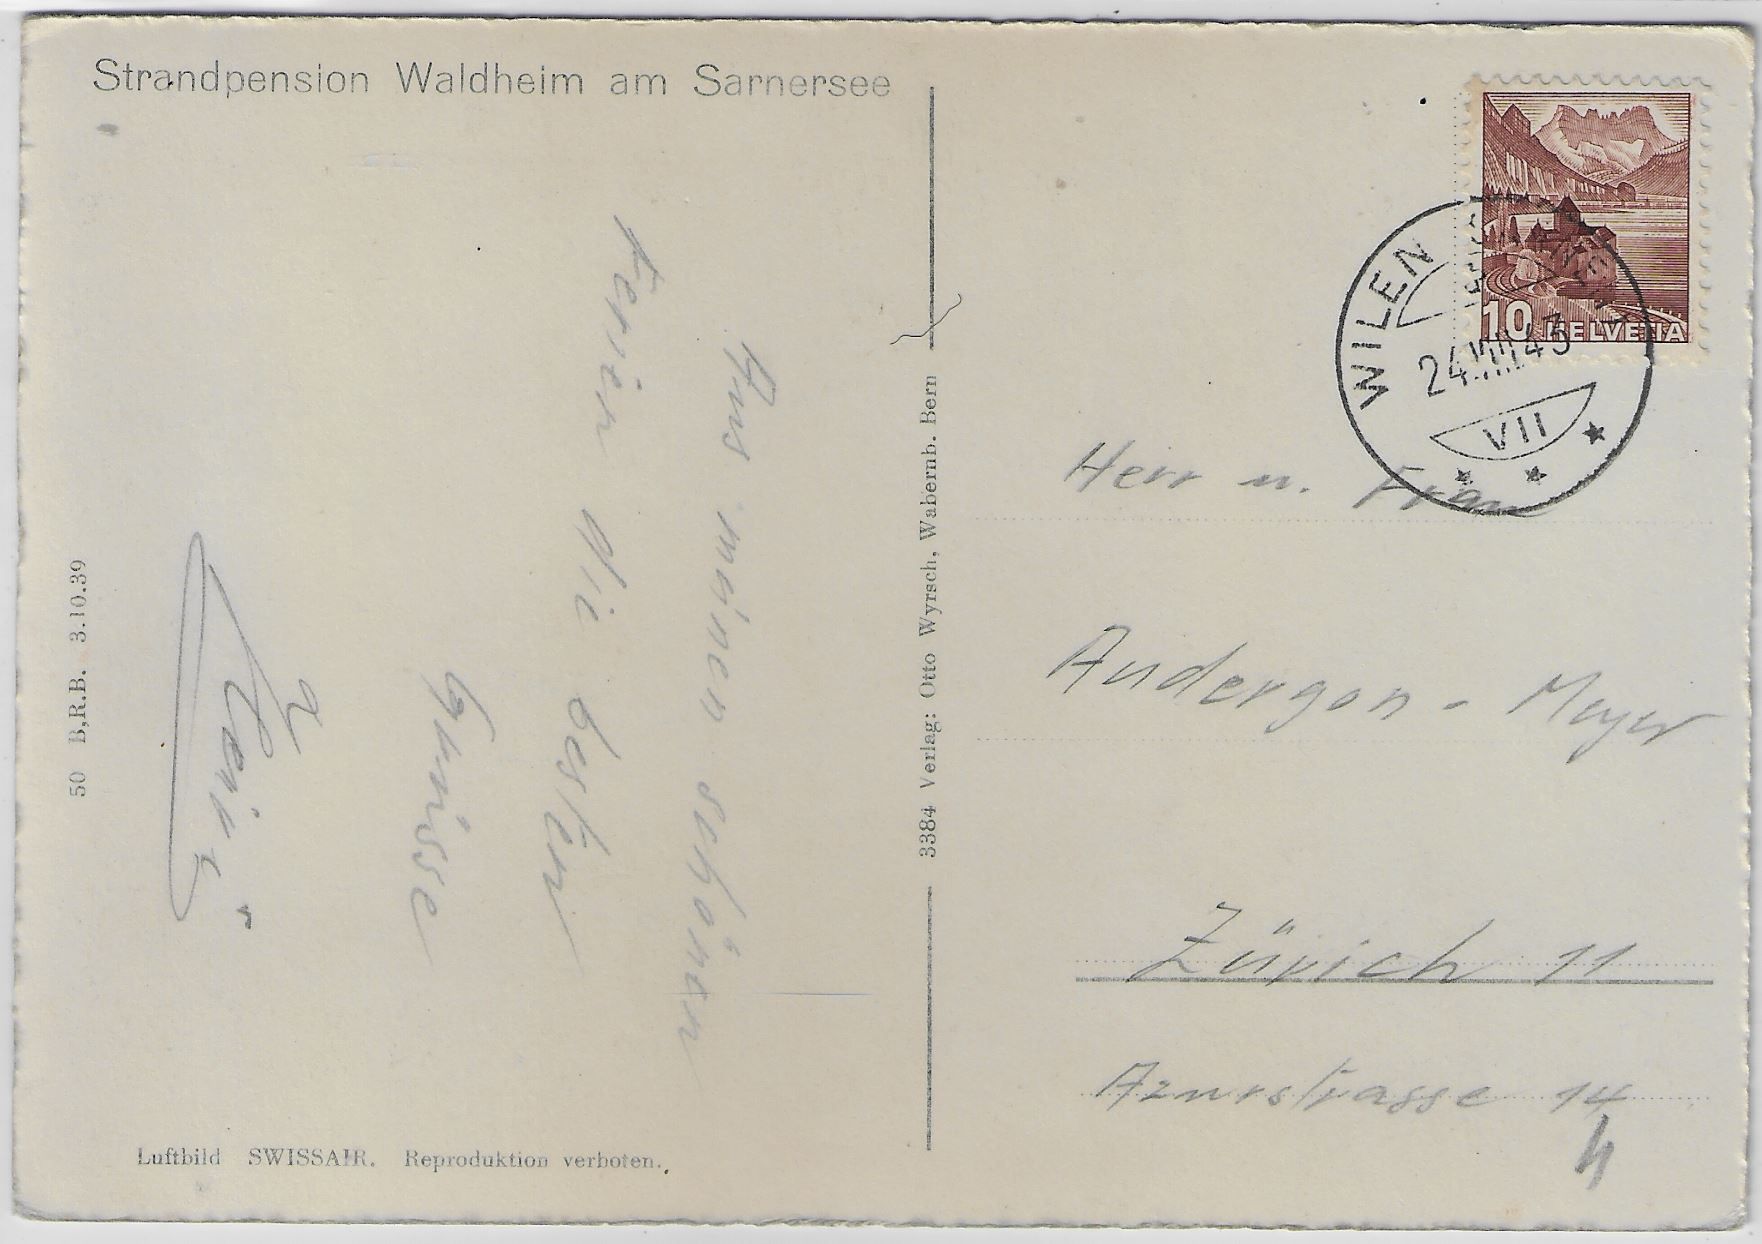 Strandpension Waldheim am Sarnersee
Aus meinen schönen
Ferien die besten
Grüsse
50 B,R.B. 3.10.39
Luftbild SWISSAIR. Reproduktion verboten.
3384 Verlag: Otto Wyrsch, Wabernb. Bern
10 HELVETIA
WILEN
24.VIII.43
VII
Herr u. Frau
Andergon - Meyer
Zürich 11
Azurstrasse 14